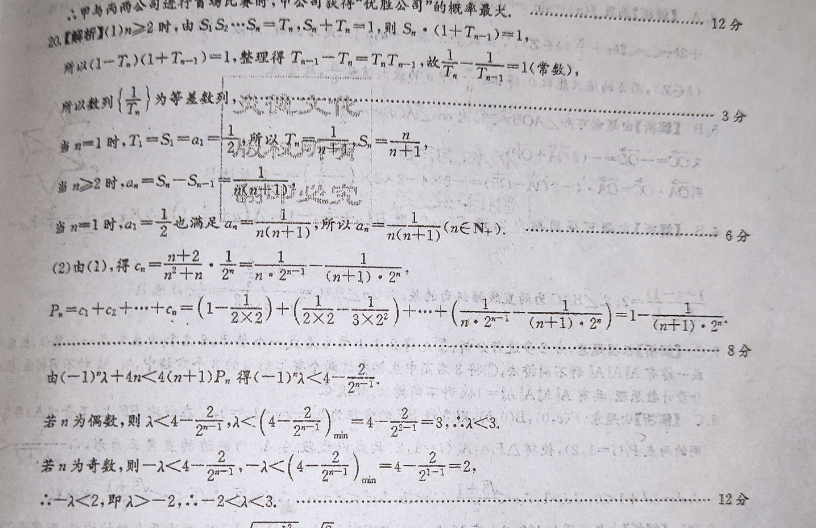 ∴甲与丙两公司进行首场比赛时,甲公司获得“优胜公司”的概率最大. 12分
20.【解析】(1)n≥2时,由 S₁S₂…Sₙ=Tₙ,Sₙ+Tₙ=1,则 Sₙ·(1+Tₙ₋₁)=1,
所以(1-Tₙ)(1+Tₙ₋₁)=1,整理得 Tₙ₋₁-Tₙ=TₙTₙ₋₁,故 1/Tₙ - 1/Tₙ₋₁ =1(常数),
所以数列{1/Tₙ}为等差数列, 3分
当 n=1 时,T₁=S₁=a₁=1/2,所以 Tₙ=1/(n+1),Sₙ=n/(n+1),
当 n≥2 时,aₙ=Sₙ-Sₙ₋₁=1/(n(n+1)),
当 n=1 时,a₁=1/2 也满足 aₙ=1/(n(n+1)),所以 aₙ=1/(n(n+1))(n∈N₊). 6分
(2)由(1),得 cₙ=(n+2)/(n²+n)·1/2ⁿ=1/(n·2ⁿ⁻¹)-1/((n+1)·2ⁿ),
Pₙ=c₁+c₂+…+cₙ=(1-1/(2×2))+(1/(2×2)-1/(3×2²))+…+(1/(n·2ⁿ⁻¹)-1/((n+1)·2ⁿ))=1-1/((n+1)·2ⁿ).
8分
由(-1)ⁿλ+4n<4(n+1)Pₙ 得(-1)ⁿλ<4-2/2ⁿ⁻¹.
若 n 为偶数,则 λ<4-2/2ⁿ⁻¹,λ<(4-2/2ⁿ⁻¹)min=4-2/2²⁻¹=3,∴λ<3.
若 n 为奇数,则-λ<4-2/2ⁿ⁻¹,-λ<(4-2/2ⁿ⁻¹)min=4-2/2¹⁻¹=2,
∴-λ<2,即 λ>-2,∴-2<λ<3. 12分